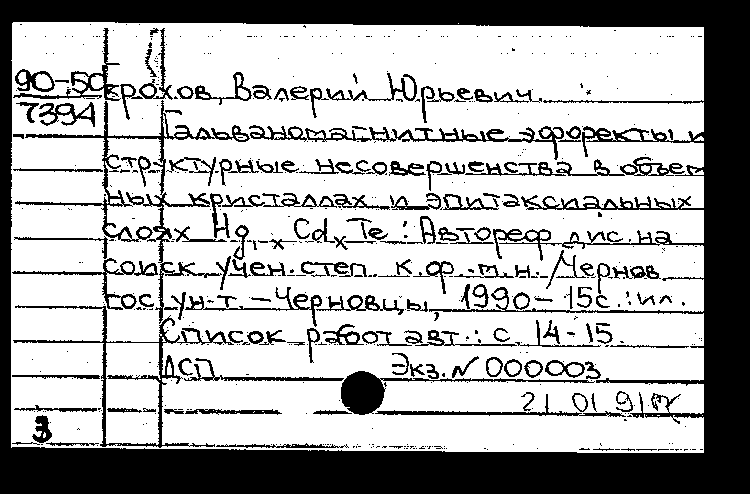 90-50
7394
Ерохов, Валерий Юрьевич.
Гальваномагнитные эффекты и
структурные несовершенства в объем
ных кристаллах и эпитаксиальных
слоях Hg1-x CdxTe : Автореф дис. на
соиск. учен. степ. к. ф.-м. н. / Чернов.
гос. ун-т. - Черновцы, 1990 - 15с. : ил.
Список работ авт.: с. 14-15.
ДСП Экз. N 000003
21 01 91
3